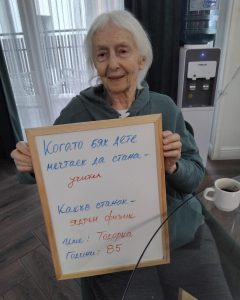 Когато бях дете
мечтаех да стана -
учител
Какъв станах -
ядрен физик
Име: Тодорка
Години: 85